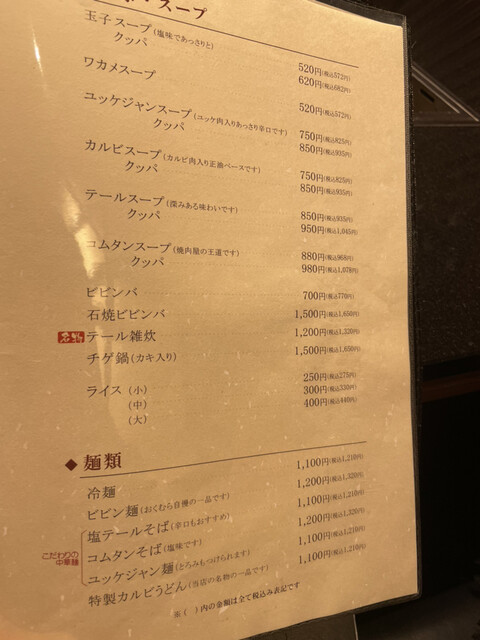 ・スープ
玉子スープ(塩味であっさりと) 520円(税込572円)
クッパ 620円(税込682円)
ワカメスープ 520円(税込572円)
ユッケジャンスープ(ユッケ肉入りあっさり辛口です) 750円(税込825円)
クッパ 850円(税込935円)
カルビスープ(カルビ肉入り正油ベースです) 750円(税込825円)
クッパ 850円(税込935円)
テールスープ(深みある味わいです) 850円(税込935円)
クッパ 950円(税込1,045円)
コムタンスープ(焼肉屋の王道です) 880円(税込968円)
クッパ 980円(税込1,078円)
ビビンバ 700円(税込770円)
石焼ビビンバ 1,500円(税込1,650円)
名物 テール雑炊 1,200円(税込1,320円)
チゲ鍋(カキ入り) 1,500円(税込1,650円)
ライス (小) 250円(税込275円)
(中) 300円(税込330円)
(大) 400円(税込440円)
◆ 麺類
冷麺 1,100円(税込1,210円)
ビビン麺(おくむら自慢の一品です) 1,200円(税込1,320円)
こだわりの
中華麺
塩テールそば(辛口もおすすめ) 1,100円(税込1,210円)
コムタンそば(塩味です) 1,200円(税込1,320円)
ユッケジャン麺(とろみもつけられます) 1,100円(税込1,210円)
特製カルビうどん(当店の名物の一品です) 1,100円(税込1,210円)
※( )内の金額は全て税込み表記です